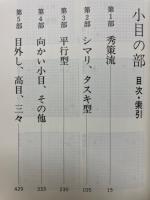 小目の部 目次・索引
第1部 秀策流 15
第2部 シマリ、タスキ型 105
第3部 平行型 239
第4部 向かい小目、その他 333
第5部 目外し、高目、三々 429